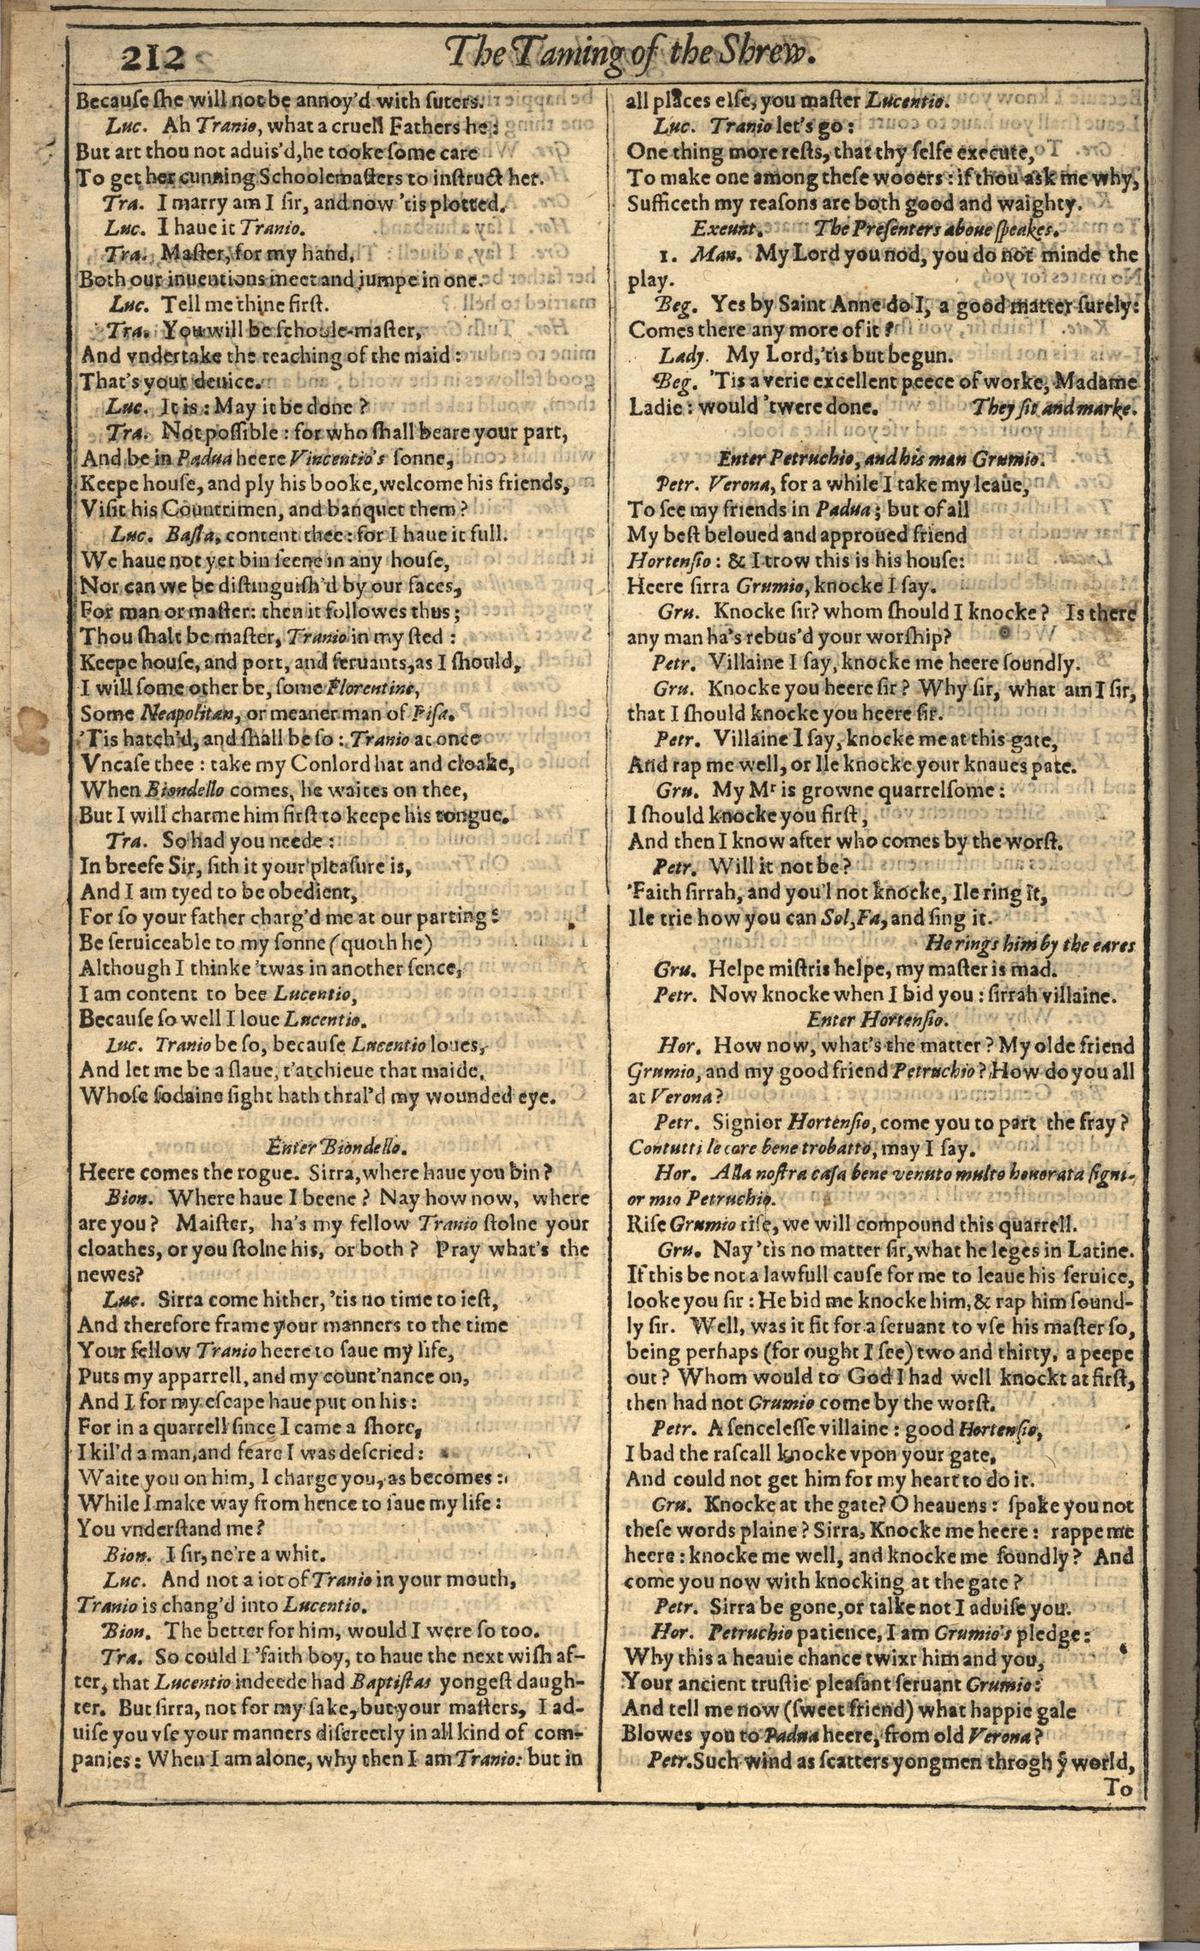 212
The Taming of the Shrew.
Because she will not be annoy'd with suters.
Luc. Ah Tranio, what a cruell Fathers he:
But art thou not aduis'd, he tooke some care
To get her cunning Schoolemasters to instruct her.
Tra. I marry am I sir, and now 'tis plotted.
Luc. I haue it Tranio.
Tra. Master, for my hand,
Both our inuentions meet and jumpe in one.
Luc. Tell me thine first.
Tra. You will be schoole-master,
And vndertake the teaching of the maid:
That's your deuice.
Luc. It is: May it be done?
Tra. Not possible: for who shall beare your part,
And be in Padua heere Vincentio's sonne,
Keepe house, and ply his booke, welcome his friends,
Visit his Countrimen, and banquet them?
Luc. Basta, content thee: for I haue it full.
We haue not yet bin seene in any house,
Nor can we be distinguish'd by our faces,
For man or master: then it followes thus;
Thou shalt be master, Tranio in my sted:
Keepe house, and port, and seruants, as I should,
I will some other be, some Florentine,
Some Neapolitan, or meaner man of Pisa.
'Tis hatch'd, and shall be so: Tranio at once
Vncase thee: take my Conlord hat and cloake,
When Biondello comes, he waites on thee,
But I will charme him first to keepe his tongue.
Tra. So had you neede:
In breefe Sir, sith it your pleasure is,
And I am tyed to be obedient,
For so your father charg'd me at our parting:
Be seruiceable to my sonne (quoth he)
Although I thinke 'twas in another sence,
I am content to bee Lucentio,
Because so well I loue Lucentio.
Luc. Tranio be so, because Lucentio loues,
And let me be a slaue, t'atchieue that maide,
Whose sodaine sight hath thral'd my wounded eye.
Enter Biondello.
Heere comes the rogue. Sirra, where haue you bin?
Bion. Where haue I beene? Nay how now, where
are you? Maister, ha's my fellow Tranio stolne your
cloathes, or you stolne his, or both? Pray what's the
newes?
Luc. Sirra come hither, 'tis no time to iest,
And therefore frame your manners to the time
Your fellow Tranio heere to saue my life,
Puts my apparrell, and my count'nance on,
And I for my escape haue put on his:
For in a quarrell since I came a shore,
I kil'd a man, and feare I was descried:
Waite you on him, I charge you, as becomes:
While I make way from hence to saue my life:
You vnderstand me?
Bion. I sir, ne're a whit.
Luc. And not a iot of Tranio in your mouth,
Tranio is chang'd into Lucentio.
Bion. The better for him, would I were so too.
Tra. So could I 'faith boy, to haue the next wish af-
ter, that Lucentio indeede had Baptistas yongest daugh-
ter. But sirra, not for my sake, but your masters, I ad-
uise you vse your manners discreetly in all kind of com-
panies: When I am alone, why then I am Tranio: but in
all places else, you master Lucentio.
Luc. Tranio let's go:
One thing more rests, that thy selfe execute,
To make one among these wooers: if thou ask me why,
Sufficeth my reasons are both good and waighty.
Exeunt. The Presenters aboue speakes.
1. Man. My Lord you nod, you do not minde the
play.
Beg. Yes by Saint Anne do I, a good matter surely:
Comes there any more of it?
Lady. My Lord, 'tis but begun.
Beg. 'Tis a verie excellent peece of worke, Madame
Ladie: would 'twere done. They sit and marke.
Enter Petruchio, and his man Grumio.
Petr. Verona, for a while I take my leaue,
To see my friends in Padua; but of all
My best beloued and approued friend
Hortensio: & I trow this is his house:
Heere sirra Grumio, knocke I say.
Gru. Knocke sir? whom should I knocke? Is there
any man ha's rebus'd your worship?
Petr. Villaine I say, knocke me heere soundly.
Gru. Knocke you heere sir? Why sir, what am I sir,
that I should knocke you heere sir.
Petr. Villaine I say, knocke me at this gate,
And rap me well, or Ile knocke your knaues pate.
Gru. My Mr is growne quarrelsome:
I should knocke you first,
And then I know after who comes by the worst.
Petr. Will it not be?
'Faith sirrah, and you'l not knocke, Ile ring it,
Ile trie how you can Sol, Fa, and sing it.
He rings him by the eares
Gru. Helpe mistris helpe, my master is mad.
Petr. Now knocke when I bid you: sirrah villaine.
Enter Hortensio.
Hor. How now, what's the matter? My olde friend
Grumio, and my good friend Petruchio? How do you all
at Verona?
Petr. Signior Hortensio, come you to part the fray?
Contutti le core bene trobatto, may I say.
Hor. Alla nostra casa bene venuto multo honorata signi-
or mio Petruchio.
Rise Grumio rise, we will compound this quarrell.
Gru. Nay 'tis no matter sir, what he leges in Latine.
If this be not a lawfull cause for me to leaue his seruice,
looke you sir: He bid me knocke him, & rap him sound-
ly sir. Well, was it fit for a seruant to vse his master so,
being perhaps (for ought I see) two and thirty, a peepe
out? Whom would to God I had well knockt at first,
then had not Grumio come by the worst.
Petr. A sencelesse villaine: good Hortensio,
I bad the rascall knocke vpon your gate,
And could not get him for my heart to do it.
Gru. Knocke at the gate? O heauens: spake you not
these words plaine? Sirra, Knocke me heere: rappe me
heere: knocke me well, and knocke me soundly? And
come you now with knocking at the gate?
Petr. Sirra be gone, or talke not I aduise you.
Hor. Petruchio patience, I am Grumio's pledge:
Why this a heauie chance twixt him and you,
Your ancient trustie pleasant seruant Grumio:
And tell me now (sweet friend) what happie gale
Blowes you to Padua heere, from old Verona?
Petr. Such wind as scatters yongmen throgh yͤ world,
To